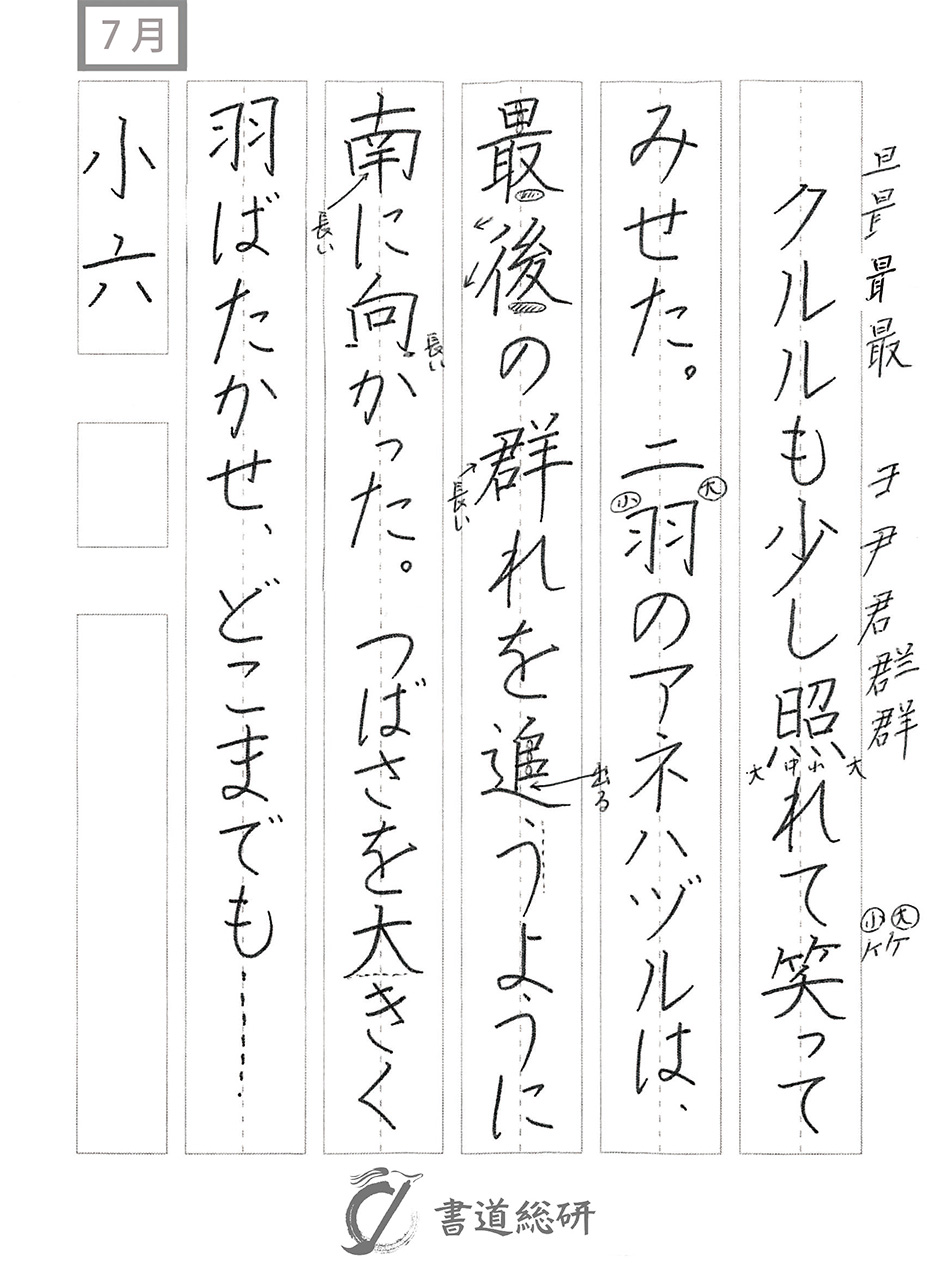 7月
旦 昻 冣 最
ヨ 尹 君 群 群
小 大
クルルも少し照れて笑って
大 中 小 大
みせた。二羽のアネハヅルは、
小 大
最後の群れを追うように
長い
出る
南に向かった。つばさを大きく
長い
長い
羽ばたかせ、どこまでも……
小六
書道総研